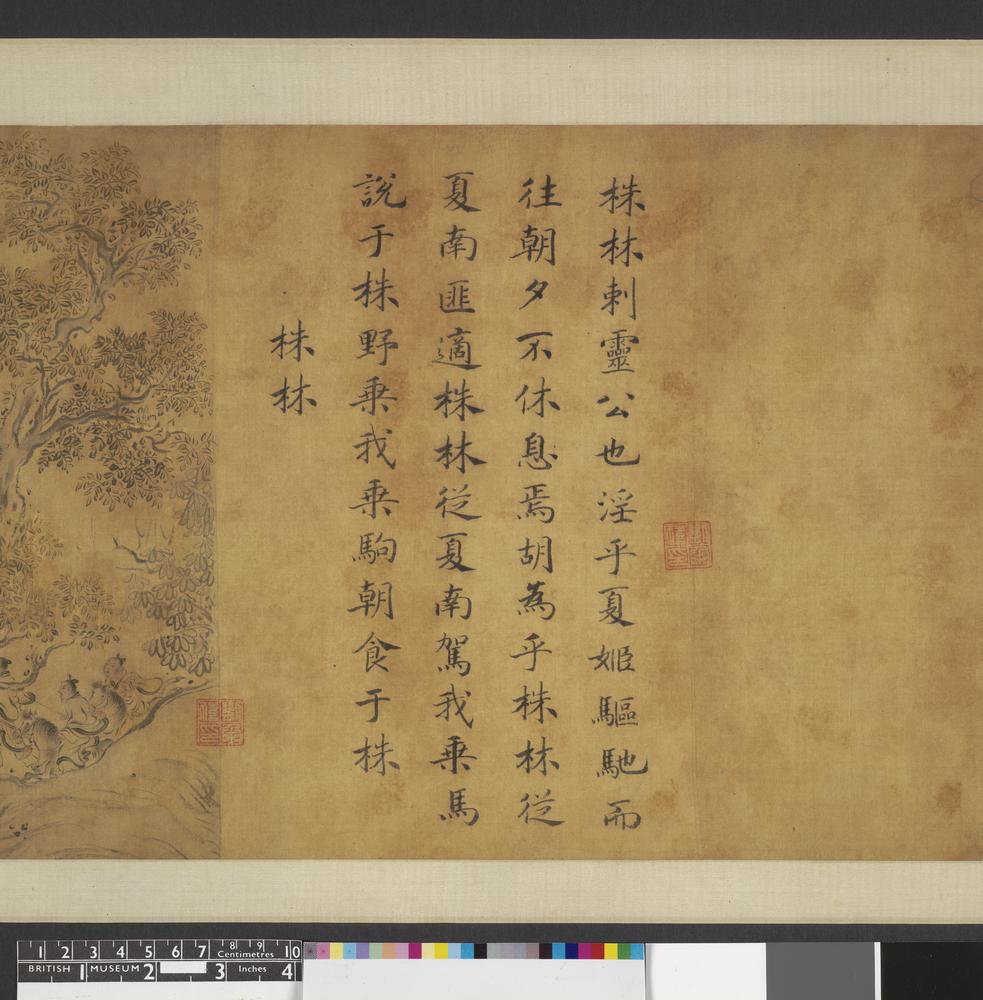 株林刺靈公也淫乎夏姬驅馳而
往朝夕不休息焉胡為乎株林從
夏南匪適株林從夏南駕我乗馬
說于株野乗我乗駒朝食于株
株林
1 2 3 4 5 6 7 8 9 10
Centimetres
BRITISH MUSEUM
1 2 3 4
Inches